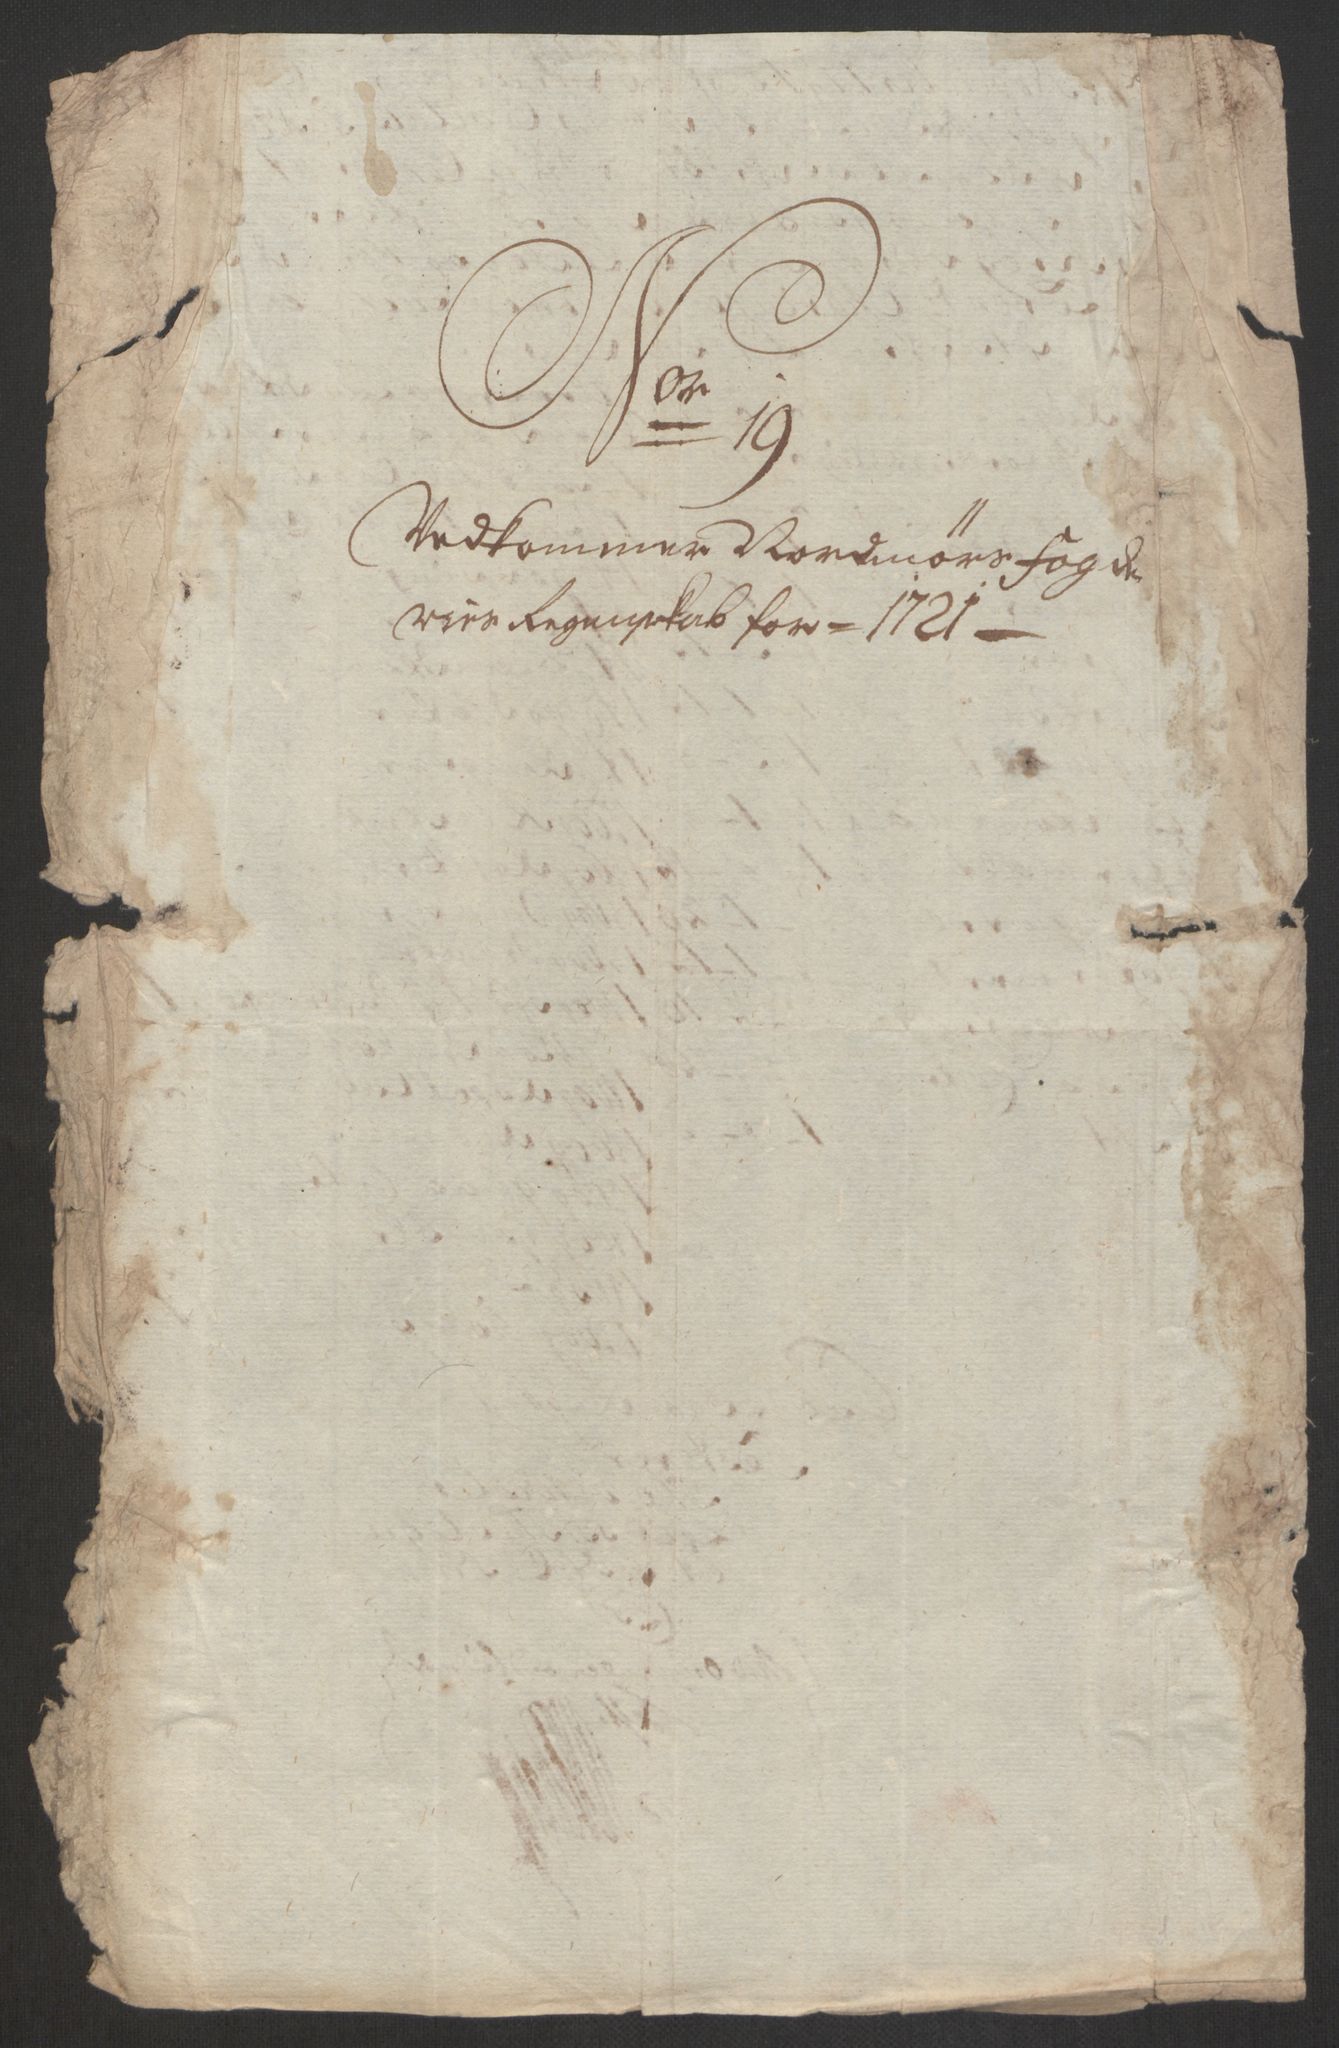 Nor
19
Vedkommer Nordmörs fogde
ries Regenskab for = 1721 —